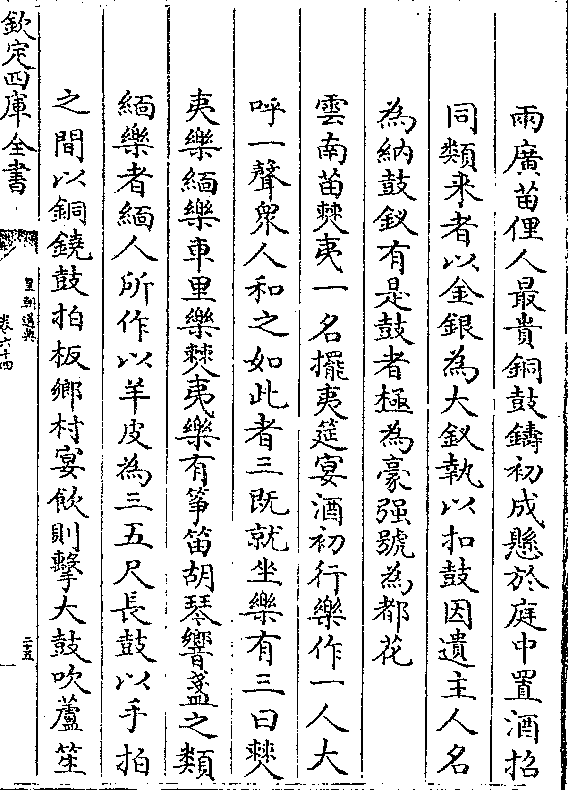 兩廣苗俚人最貴銅鼓鑄初成懸於庭中置酒招
同類来者以金銀為大釵執以扣鼓因遺主人名
為納鼓釵有是鼓者極為豪强號為都花
雲南苗僰夷一名擺夷筵宴酒初行樂作一人大
呼一聲衆人和之如此者三既就坐樂有三曰僰
夷樂緬樂車里樂僰夷樂有箏笛胡琴響盞之類
緬樂者緬人所作以羊皮為三五尺長鼓以手拍
之間以銅鐃鼓拍板鄉村宴飲則擊大鼓吹蘆笙
欽定四庫全書
皇朝通典
卷六十四
二五